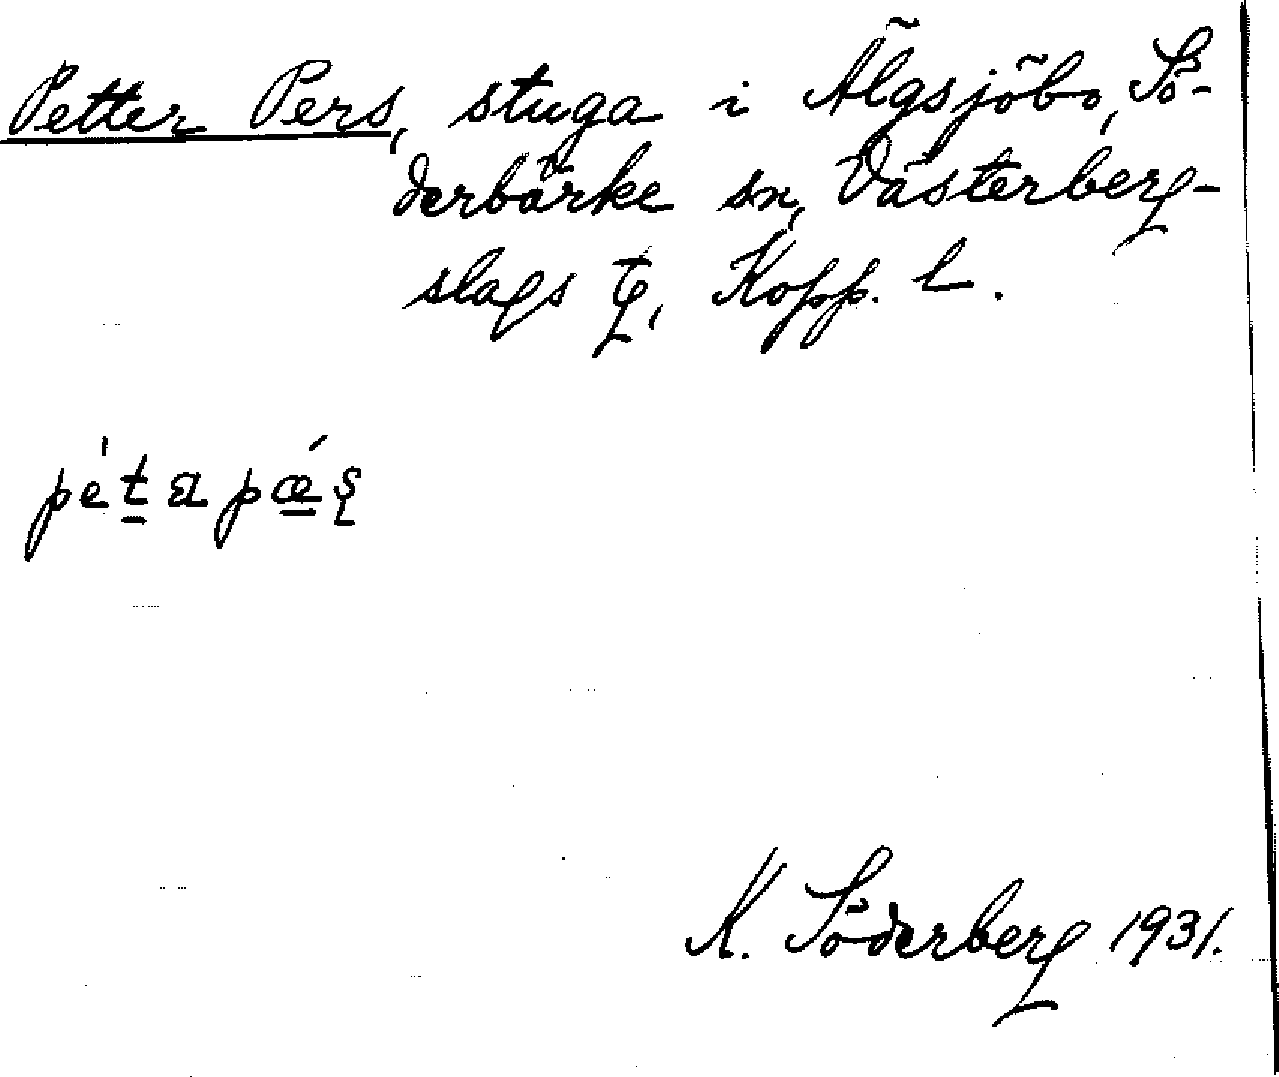 Petter Pers, stuga i Älgsjöbo, Sö-
derbärke sn, Västerberg-
slags tg, Kopp. l.
pèt̲a pǽ̲ʂ
K. Söderberg 1931.